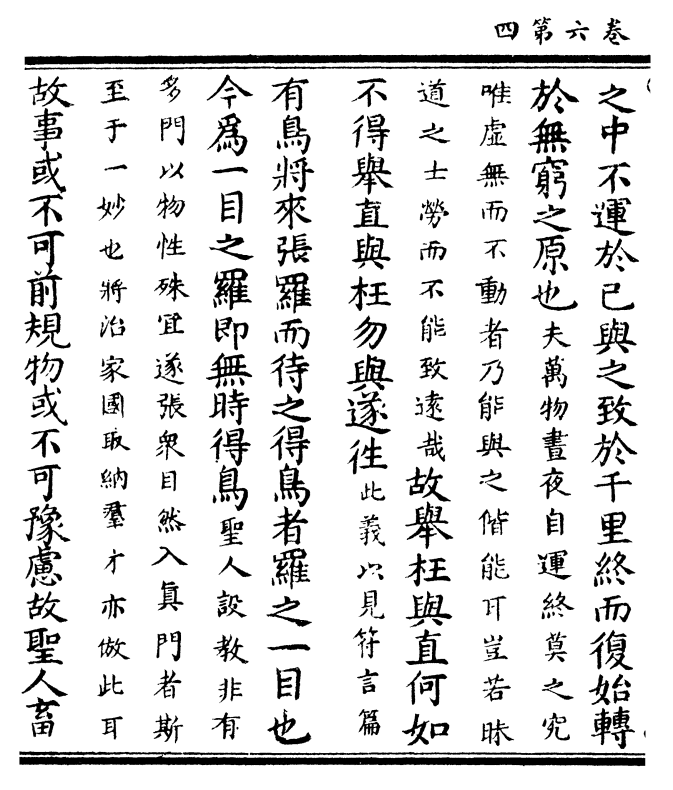 卷六第四
之中不運於己與之致於千里終而復始轉
於無窮之原也夫萬物晝夜自運終莫之究
唯虛無而不動者乃能與之偕能耳豈若昧
道之士勞而不能致遠哉故舉枉與直何如
不得舉直與枉勿與遂往此義以見符言篇
有鳥將來張羅而待之得鳥者羅之一目也
今為一目之羅即無時得鳥聖人設教非有
多門以物性殊宜遂張衆目然入真門者斯
至于一妙也將治家國取納羣才亦倣此耳
故事或不可前規物或不可豫慮故聖人畜